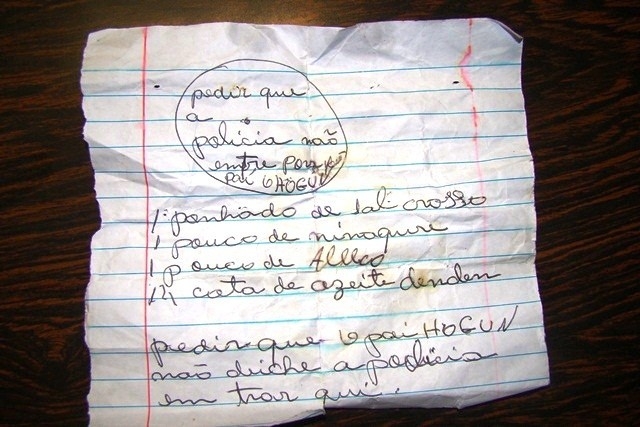 pedir que
a
policia não
entre por
pai OHOGUN
1 ponhado de sal crosso
1 pouco de ninagure
1 pouco de
121 cota de azeite denden
pedir que o pai HOGUN
não deiche a policia
em trar qui.